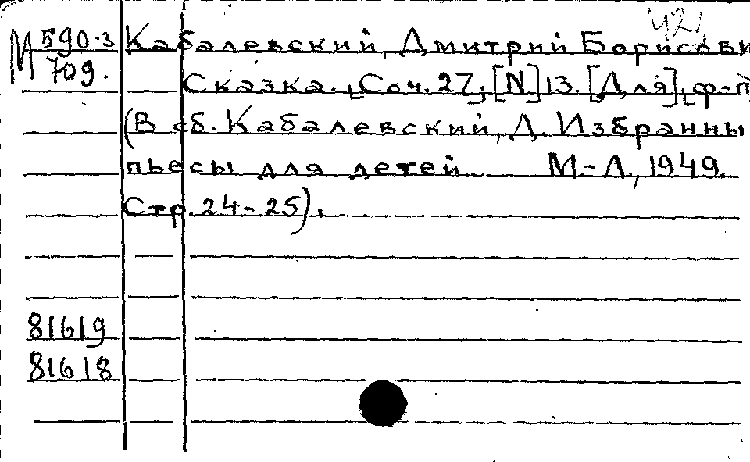 421
М 590-3 Кабалевский, Дмитрий Борисови
709. Сказка. Соч. 27, [N] 13. [Для] ф-п
(В сб. Кабалевский, Д. Избранны
пьесы для детей. М-Л, 1949.
Стр. 24-25).
81619
81618